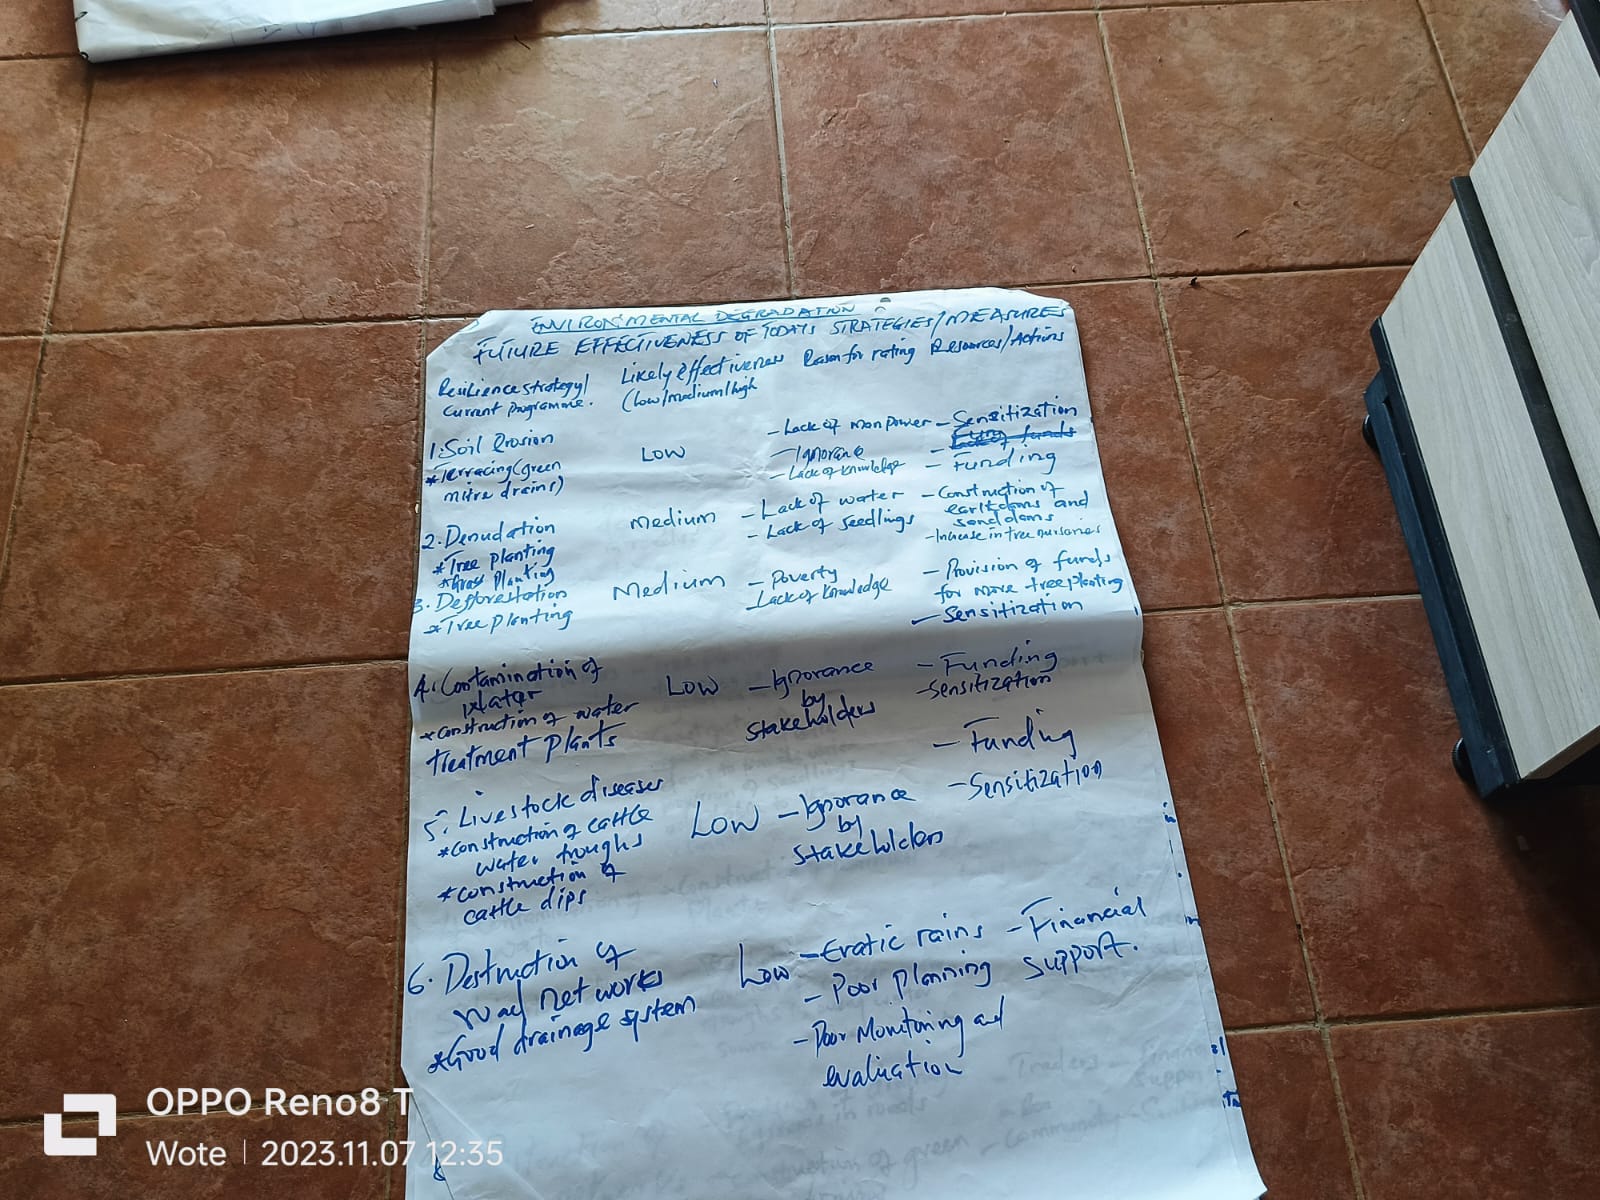 ENVIRONMENTAL DEGRADATION
FUTURE EFFECTIVENESS OF TODAYS STRATEGIES/MEASURES
Resilience strategy/ current programme.
Likely effectiveness (low/medium/high
Reason for rating
Resources/Actions
1. Soil erosion
* Terracing (green
mitre drains)
Low
- Lack of man power
- Ignorance
- Lack of knowledge
- Sensitization
- Funding
2. Denudation
* Tree planting
* Grass planting
Medium
- Lack of water
- Lack of seedlings
- Construction of
earth dams and
sand dams
- Increase in tree nurseries
3. Defforestation
* Tree planting
Medium
- Poverty
- Lack of knowledge
- Provision of funds
for more tree planting
- Sensitization
4. Contamination of
water
* construction of water
treatment plants
Low
- Ignorance
by
stakeholders
- Funding
- Sensitization
5. Livestock diseases
* construction of cattle
water troughs
* construction of
cattle dips
Low
- Ignorance
by
stakeholders
- Funding
- Sensitization
6. Destruction of
road networks
* Good drainage system
Low
- Eratic rains
- Poor planning
- Poor Monitoring and
evaluation
- Financial
support.
OPPO Reno8 T
Wote | 2023.11.07 12:35